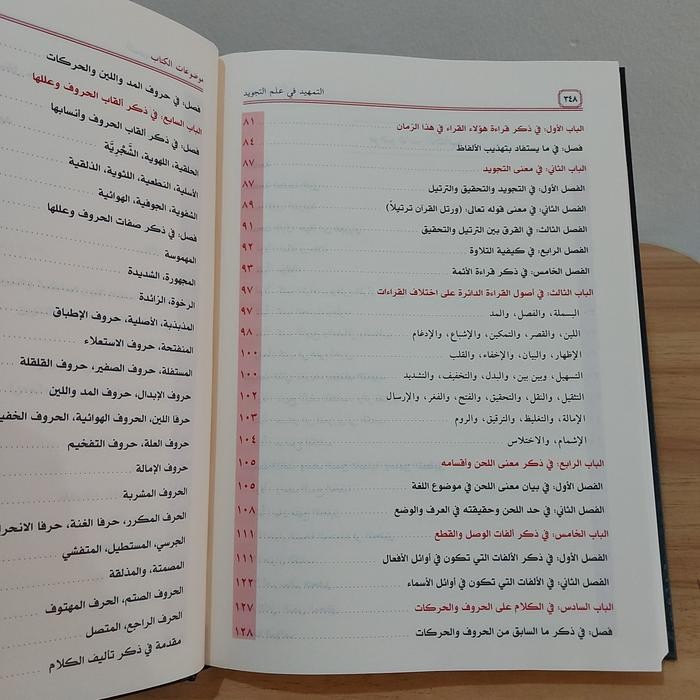 ٣٤٨
التمهيد في علم التجويد
الباب الأول: في ذكر قراءة هؤلاء القراء في هذا الزمان ٨١
فصل: في ما يستفاد بتهذيب الألفاظ ٨٤
الباب الثاني: في معنى التجويد ٨٧
الفصل الأول: في التجويد والتحقيق والترتيل ٨٧
الفصل الثاني: في معنى قوله تعالى: (ورتل القرآن ترتيلاً) ٨٩
الفصل الثالث: في الفرق بين الترتيل والتحقيق ٩١
الفصل الرابع: في كيفية التلاوة ٩٢
الفصل الخامس: في ذكر قراءة الأئمة ٩٣
الباب الثالث: في أصول القراءة الدائرة على اختلاف القراءات ٩٧
البسملة، والفصل، والمد ٩٧
اللين، والقصر، والتمكين، والإشباع، والإدغام ٩٨
الإظهار، والبيان، والإخفاء، والقلب ١٠٠
التسهيل، وبين بين، والبدل، والتخفيف، والتشديد ١٠٠
التثقيل، والنقل، والتحقيق، والفتح، والفغر، والإرسال ١٠٢
الإمالة، والتغليظ، والترقيق، والروم ١٠٣
الإشمام، والاختلاس ١٠٤
الباب الرابع: في ذكر معنى اللحن وأقسامه ١٠٥
الفصل الأول: في بيان معنى اللحن في موضوع اللغة ١٠٥
الفصل الثاني: في حد اللحن وحقيقته في العرف والوضع ١٠٨
الباب الخامس: في ذكر ألفات الوصل والقطع ١١١
الفصل الأول: في ذكر الألفات التي تكون في أوائل الأفعال ١١١
الفصل الثاني: في الألفات التي تكون في أوائل الأسماء ١٢٢
الباب السادس: في الكلام على الحروف والحركات ١٢٧
فصل: في ذكر ما السابق من الحروف والحركات ١٢٨
موضوعات الكتاب
فصل: في حروف المد واللين والحركات
الباب السابع: في ذكر ألقاب الحروف وعللها
فصل: في ذكر ألقاب الحروف وأنسابها
الحلقية، اللهوية، الشَّجْرِيَّة
الأسلية، النطعية، اللثوية، الذلقية
الشفوية، الجوفية، الهوائية
فصل: في ذكر صفات الحروف وعللها
المهموسة
المجهورة، الشديدة
الرخوة، الزائدة
المذبذبة، الأصلية، حروف الإطباق
المنفتحة، حروف الاستعلاء
المستفلة، حروف الصفير، حروف القلقلة
حروف الإبدال، حروف المد واللين
حرفا اللين، الحروف الهوائية، الحروف
حروف العلة، حروف التفخيم
حروف الإمالة
الحروف المشربة
الحرف المكرر، حرفا الغنة، حرفا
الجرسي، المستطيل، المتفشي
المصمتة، والمذلقة
الحروف الصتم، الحرف المهتوف
الحرف الراجع، المتصل
مقدمة في ذكر تأليف الكلام